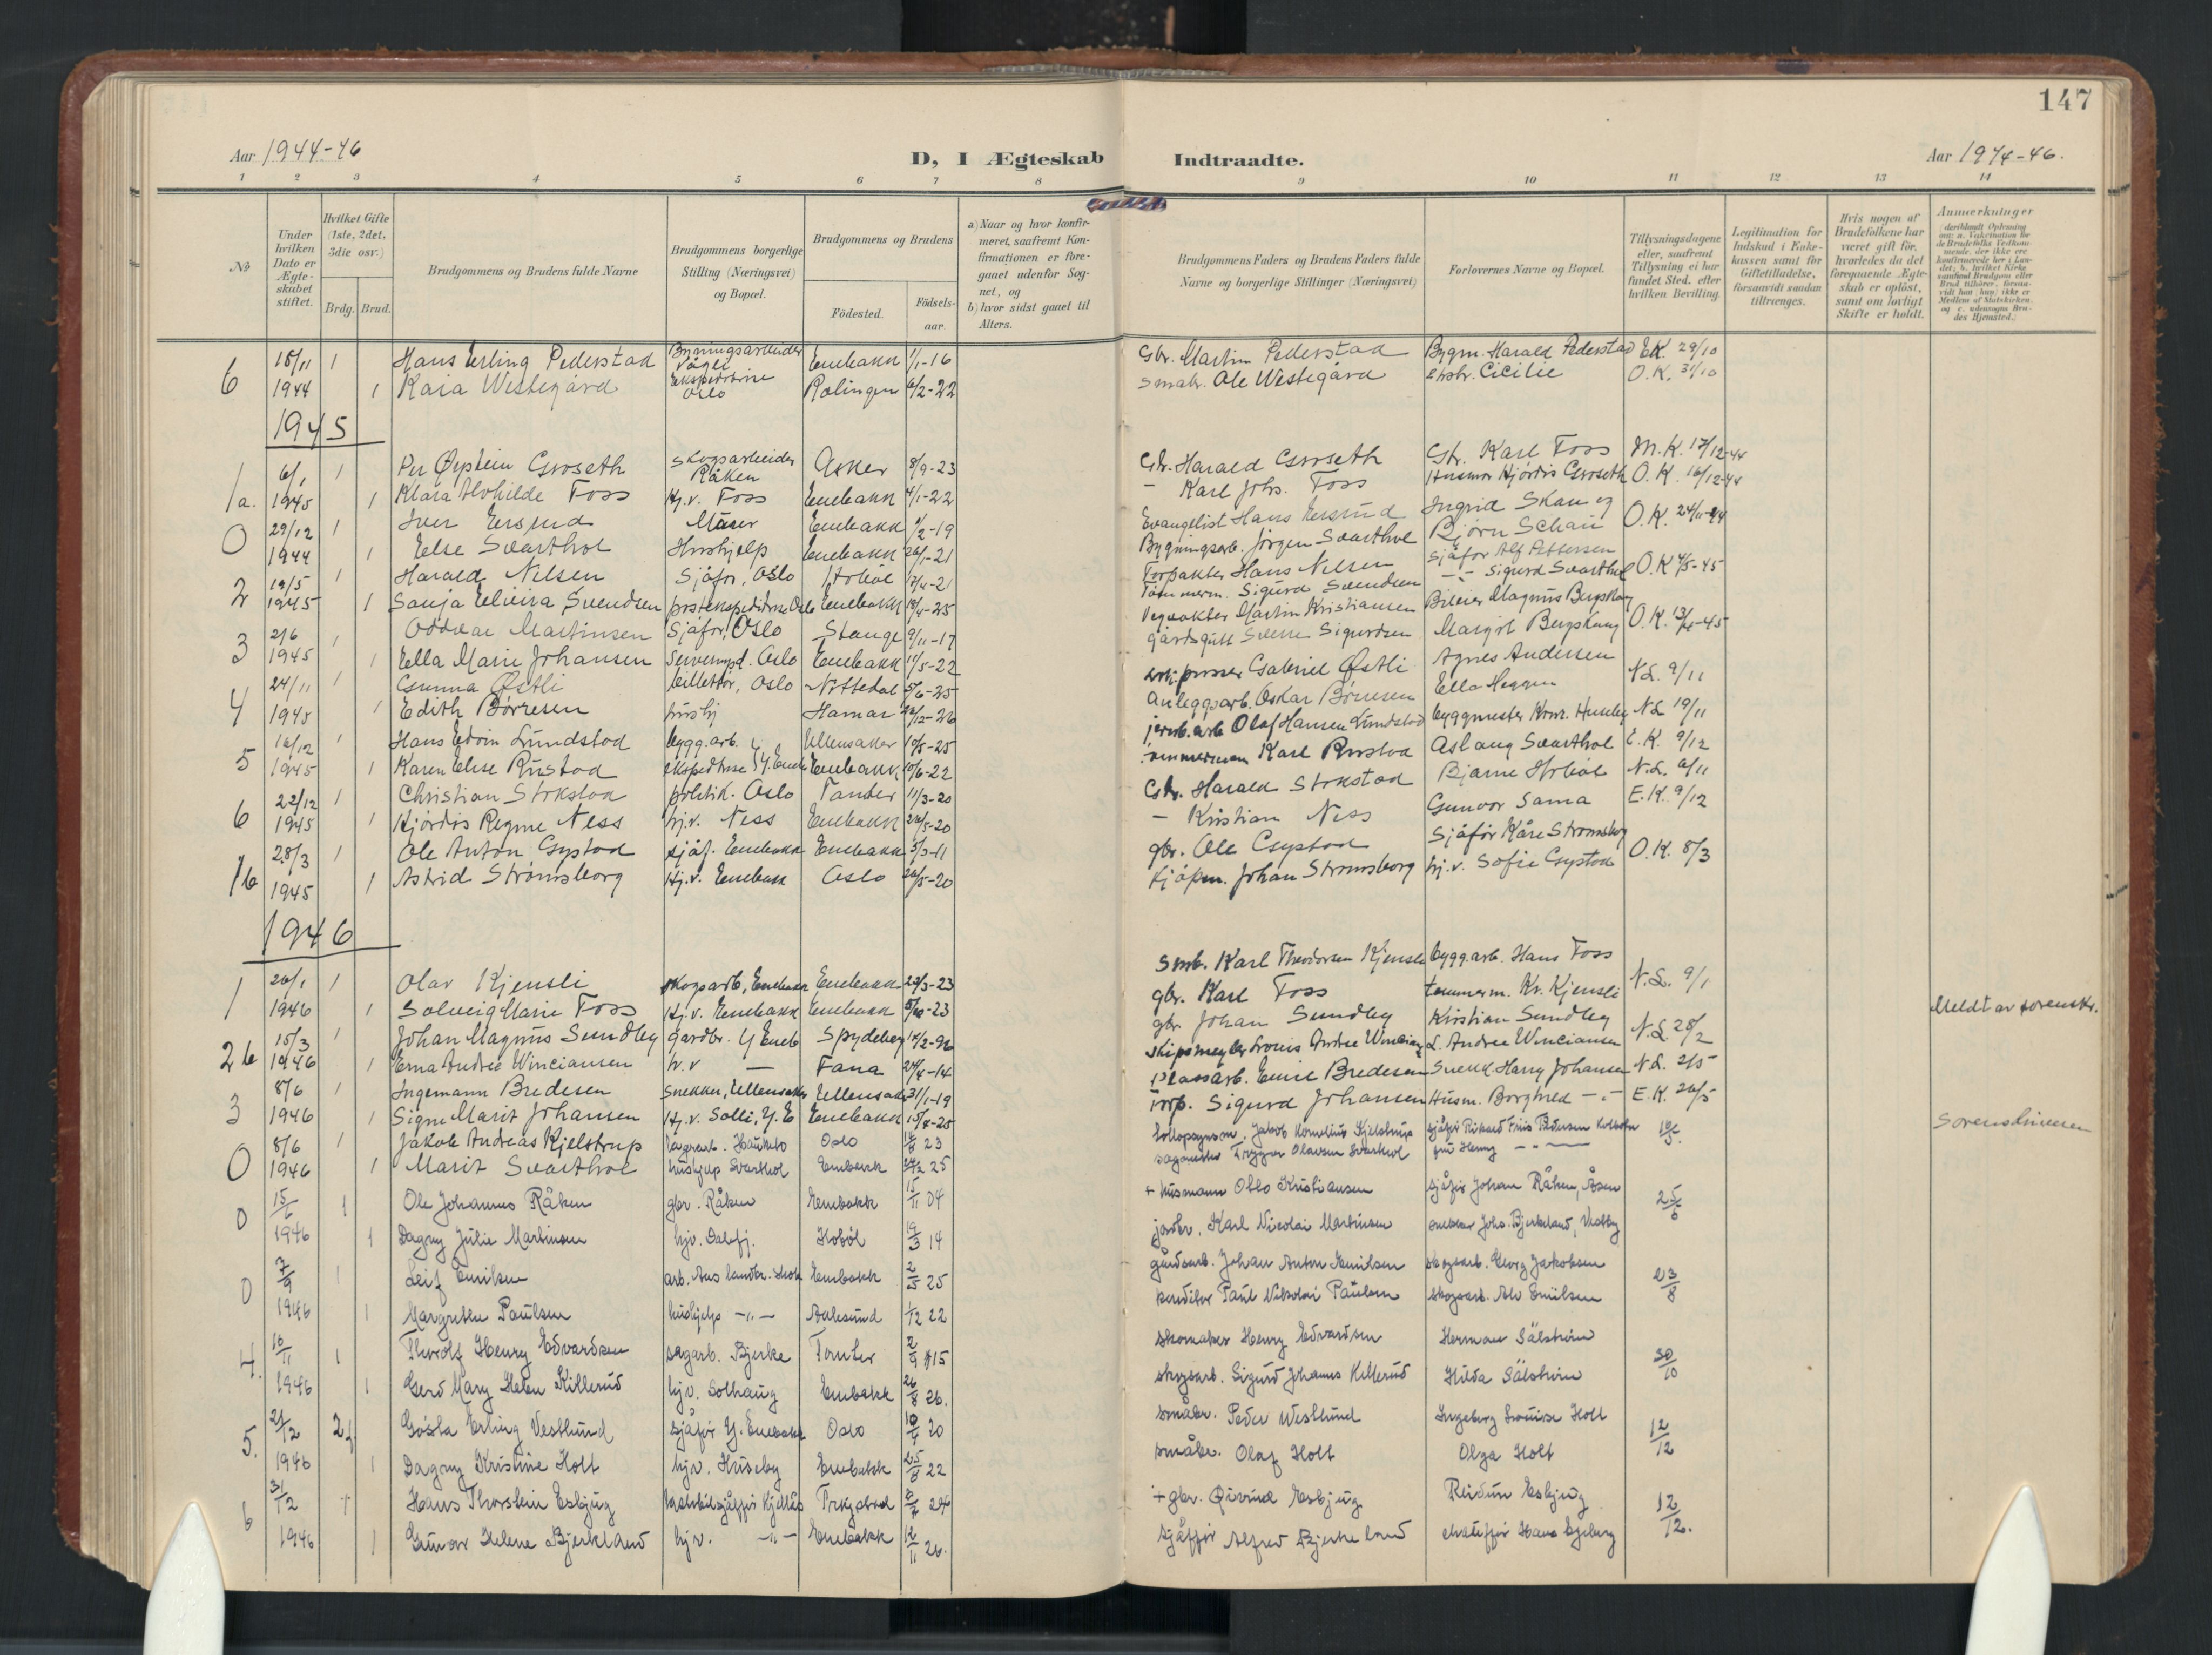 147
Aar 1944-46
D, I Ægteskab Indtraadte.
Aar 1944-46.
1 2 3 4 5 6 7 8 9 10 11 12 13 14
№
Under hvilken Dato er Ægteskabet stiftet.
Hvilket Gifte (1ste, 2det, 3die osv.)
Brdg. Brud.
Brudgommens og Brudens fulde Navne
Brudgommens borgerlige Stilling (Næringsvei) og Bopæl.
Brudgommens og Brudens
Födested.
Födsels-aar.
a) Naar og hvor konfirmeret, saafremt Konfirmationen er foregaaet udenfor Sognet, og
b) hvor sidst gaaet til Alters.
Brudgommens Faders og Brudens Faders fulde Navne og borgerlige Stillinger (Næringsvei)
Forlovernes Navne og Bopæl.
Tillysningsdagene eller, saafremt Tillysning ei har fundet Sted, efter hvilken Bevilling.
Legitimation for Indskud i Enkekassen samt for Giftetilladelse, forsaavidt saadan tiltrænges.
Hvis nogen af Brudefolkene har været gift för, hvorledes da det foregaaende Ægteskab er oplöst, samt om lovligt Skifte er holdt.
Anmerkninger
6 18/11 1 Hans Erling Pederstad Bygningsarbeider Enebakk 1/1-16 Gbr. Martin Pederstad Bygm. Harald Pederstad E.K. 29/10
1944 1 Kaia Westegård Ekspeditrise Oslo Rælingen 6/2-22 Småbr. Ole Westegård Cicilie O.K. 31/10
1945
1 6/1 1 Per Øystein Groseth Skogsarbeider Råken Asker 8/9-23 Gbr. Harald Groseth Gbr. Karl Foss M.K. 17/12-44
1a. 1945 1 Klara Alvhilde Foss Hj.v. Foss Enebakk 4/1-22 - Karl Johs. Foss Husmor Hjördis Groseth O.K. 16/12-44
0 29/12 1 Iver Ersrud Murer Enebakk 1/2-19 Evangelist Hans Ersrud Ingrid Skau og O.K. 24/11-44
1944 1 Else Svarthol Hushjelp Enebakk 26/1-21 Bygningsarb. Jörgen Svarthol Björn Schau
2 19/5 1 Harald Nelsen Sjåfør, Oslo Hobøl 17/4-21 Forpakter Hans Nelsen Sjåfør Alf Pettersen O.K 4/5-45
1945 1 Sonja Elvira Svendsen postekspeditrise Oslo Enebakk 19/4-25 Tømmerm. Sigurd Svendsen -"- Sigurd Svarthol
3 2/6 1 Oddvar Martinsen Sjåfør, Oslo Stange 9/11-17 Vegvokter Martin Kristiansen Magnus Bergskaug O.K. 13/5-45
1945 1 Ella Marie Johansen Oslo Enebakk 11/5-22 gårdsgutt Sverre Sigurdsen Margit Bergskaug
4 24/11 1 Gunnar Østli billettør, Oslo Nittedal 5/6-25 Gabriel Østli Agnes Andersen N.L. 9/11
1945 1 Edith Børresen hushj Hamar 22/12-26 Anleggsarb. Oskar Børresen Ella Heggen
5 16/12 1 Hans Edvin Lundstad bygg.arb. Ullensaker 19/5-25 jernb.arb Olaf Hansen Lundstad byggmester Huseby N.L 19/11
1945 1 Karen Elise Rustad ekspeditrise Y. Eneb Enebakk 10/6-22 tømmermann Karl Rustad Aslaug Svarthol E.K. 9/12
6 22/12 1 Christian Stokstad politik. Oslo Tomter 11/3-20 Gbr. Harald Stokstad Bjarne Hobøl N.L. 9/11
1945 1 Hjördis Regine Ness hj.v. Ness Enebakk 24/5-20 - Kristian Ness Gunvor Sama E.K. 9/12
1b 28/3 1 Ole Anton Gystad sjåf. Enebakk Enebakk 5/3-11 gbr. Ole Gystad Sjåför Kåre Strømsborg O.K. 8/3
1945 1 Astrid Strømsborg Hj.v. Enebakk Oslo 20/5-20 Kjøpm. Johan Strømsborg hj.v. Sofie Gystad
1946
1 26/1 1 Olav Kjensli Skogsarb, Enebakk Enebakk 29/3-23 Smb. Karl Theodorsen Kjensli bygg.arb. Hans Foss N.L. 9/1
1946 1 Solveig Marie Foss Hj.v. Enebakk Enebakk 8/10-23 gbr. Karl Foss tømmerm. Kr. Kjensli
2b 15/3 1 Johan Magnus Sundby Gardbr. Y Eneb Spydeberg 14/2-96 gbr Johan Sundby Kristian Sundby N.L. 28/2 Meldt av sorenskr.
1946 1 Erna Andrée Winciansen h.v — Fana 24/4-14 Skipsmegler Louis Andree Winciansen L. Andree Winciansen
3 8/6 1 Ingemann Bredesen Snekker, Ullensaker Ullensaker 31/1-19 Plassarb. Emil Bredesen Snekk Harry Johansen N.L. 2/5
1946 1 Signe Marit Johansen Hj.v. Solli, Y.E Enebakk 15/4-25 Forp. Sigurd Johansen Husm. Borghild -"- E.K. 26/5
0 8/6 1 Jakob Andreas Kjelstrup lagerarb. Hauketo Oslo 23 Jakob Kornelius Kjelstrup sjåfør Rikard Friis Pedersen Kolbotn Sorenskriveren
1946 1 Marit Svarthol hushjelp Svarthol Enebakk 25 Trygve Olavsen Svarthol fru Henny -"-
0 15/6 1 Ole Johannes Råken gbr. Råken Enebakk 15/11 04 + husmann Otto Kristiansen sjåfør Johan Råken, Åsen 25/6
1946 1 Dagny Julie Martinsen hjv. Dalefj. Hobøl 19/3 14 jordbr. Karl Nicolai Martinsen snekker Johs. Bjerkeland, Vestby
0 7/9 1 Leif Emilsen arb. Aas landbr. skole Enebakk 2/5 25 gårdsarb. Johan Anton Emilsen skogsarb. Georg Jakobsen 23/8
1946 1 Margrethe Paulsen hushjelp -"- Aalesund 1/12 22 Paul Nikolai Paulsen skogsarb. Alv Emilsen
4. 10/11 1 Thorolf Henry Edvardsen sagarb. Bjerke Tomter 2/9 15 skomaker Henry Edvardsen Herman Sälström 30/10
1946 1 Gerd Mary Helen Killerud hjv. Solhaug Enebakk 26/8 26. skogsarb. Sigurd Johannes Killerud Hilda Sälström
5. 21/12 2 Gösta Erling Vestlund sjåfør Y. Enebakk Oslo 10/4 20 småbr. Peder Westlund Ingeborg Lovise Holt 12/12
1946 1 Dagny Kristine Holt hjv. Huseby Enebakk 25/8 22 småbr. Olaf Holt Olga Holt
6 31/12 1 Hans Thorstein Esbjug Trøgstad 24 + gbr. Øivind Esbjug Reidun Esbjug 12/12.
1946 1 Gunvor Helene Bjerkland hjv. -"- Enebakk 12/11 26. Sjåffør Alfred Bjerkeland Hans